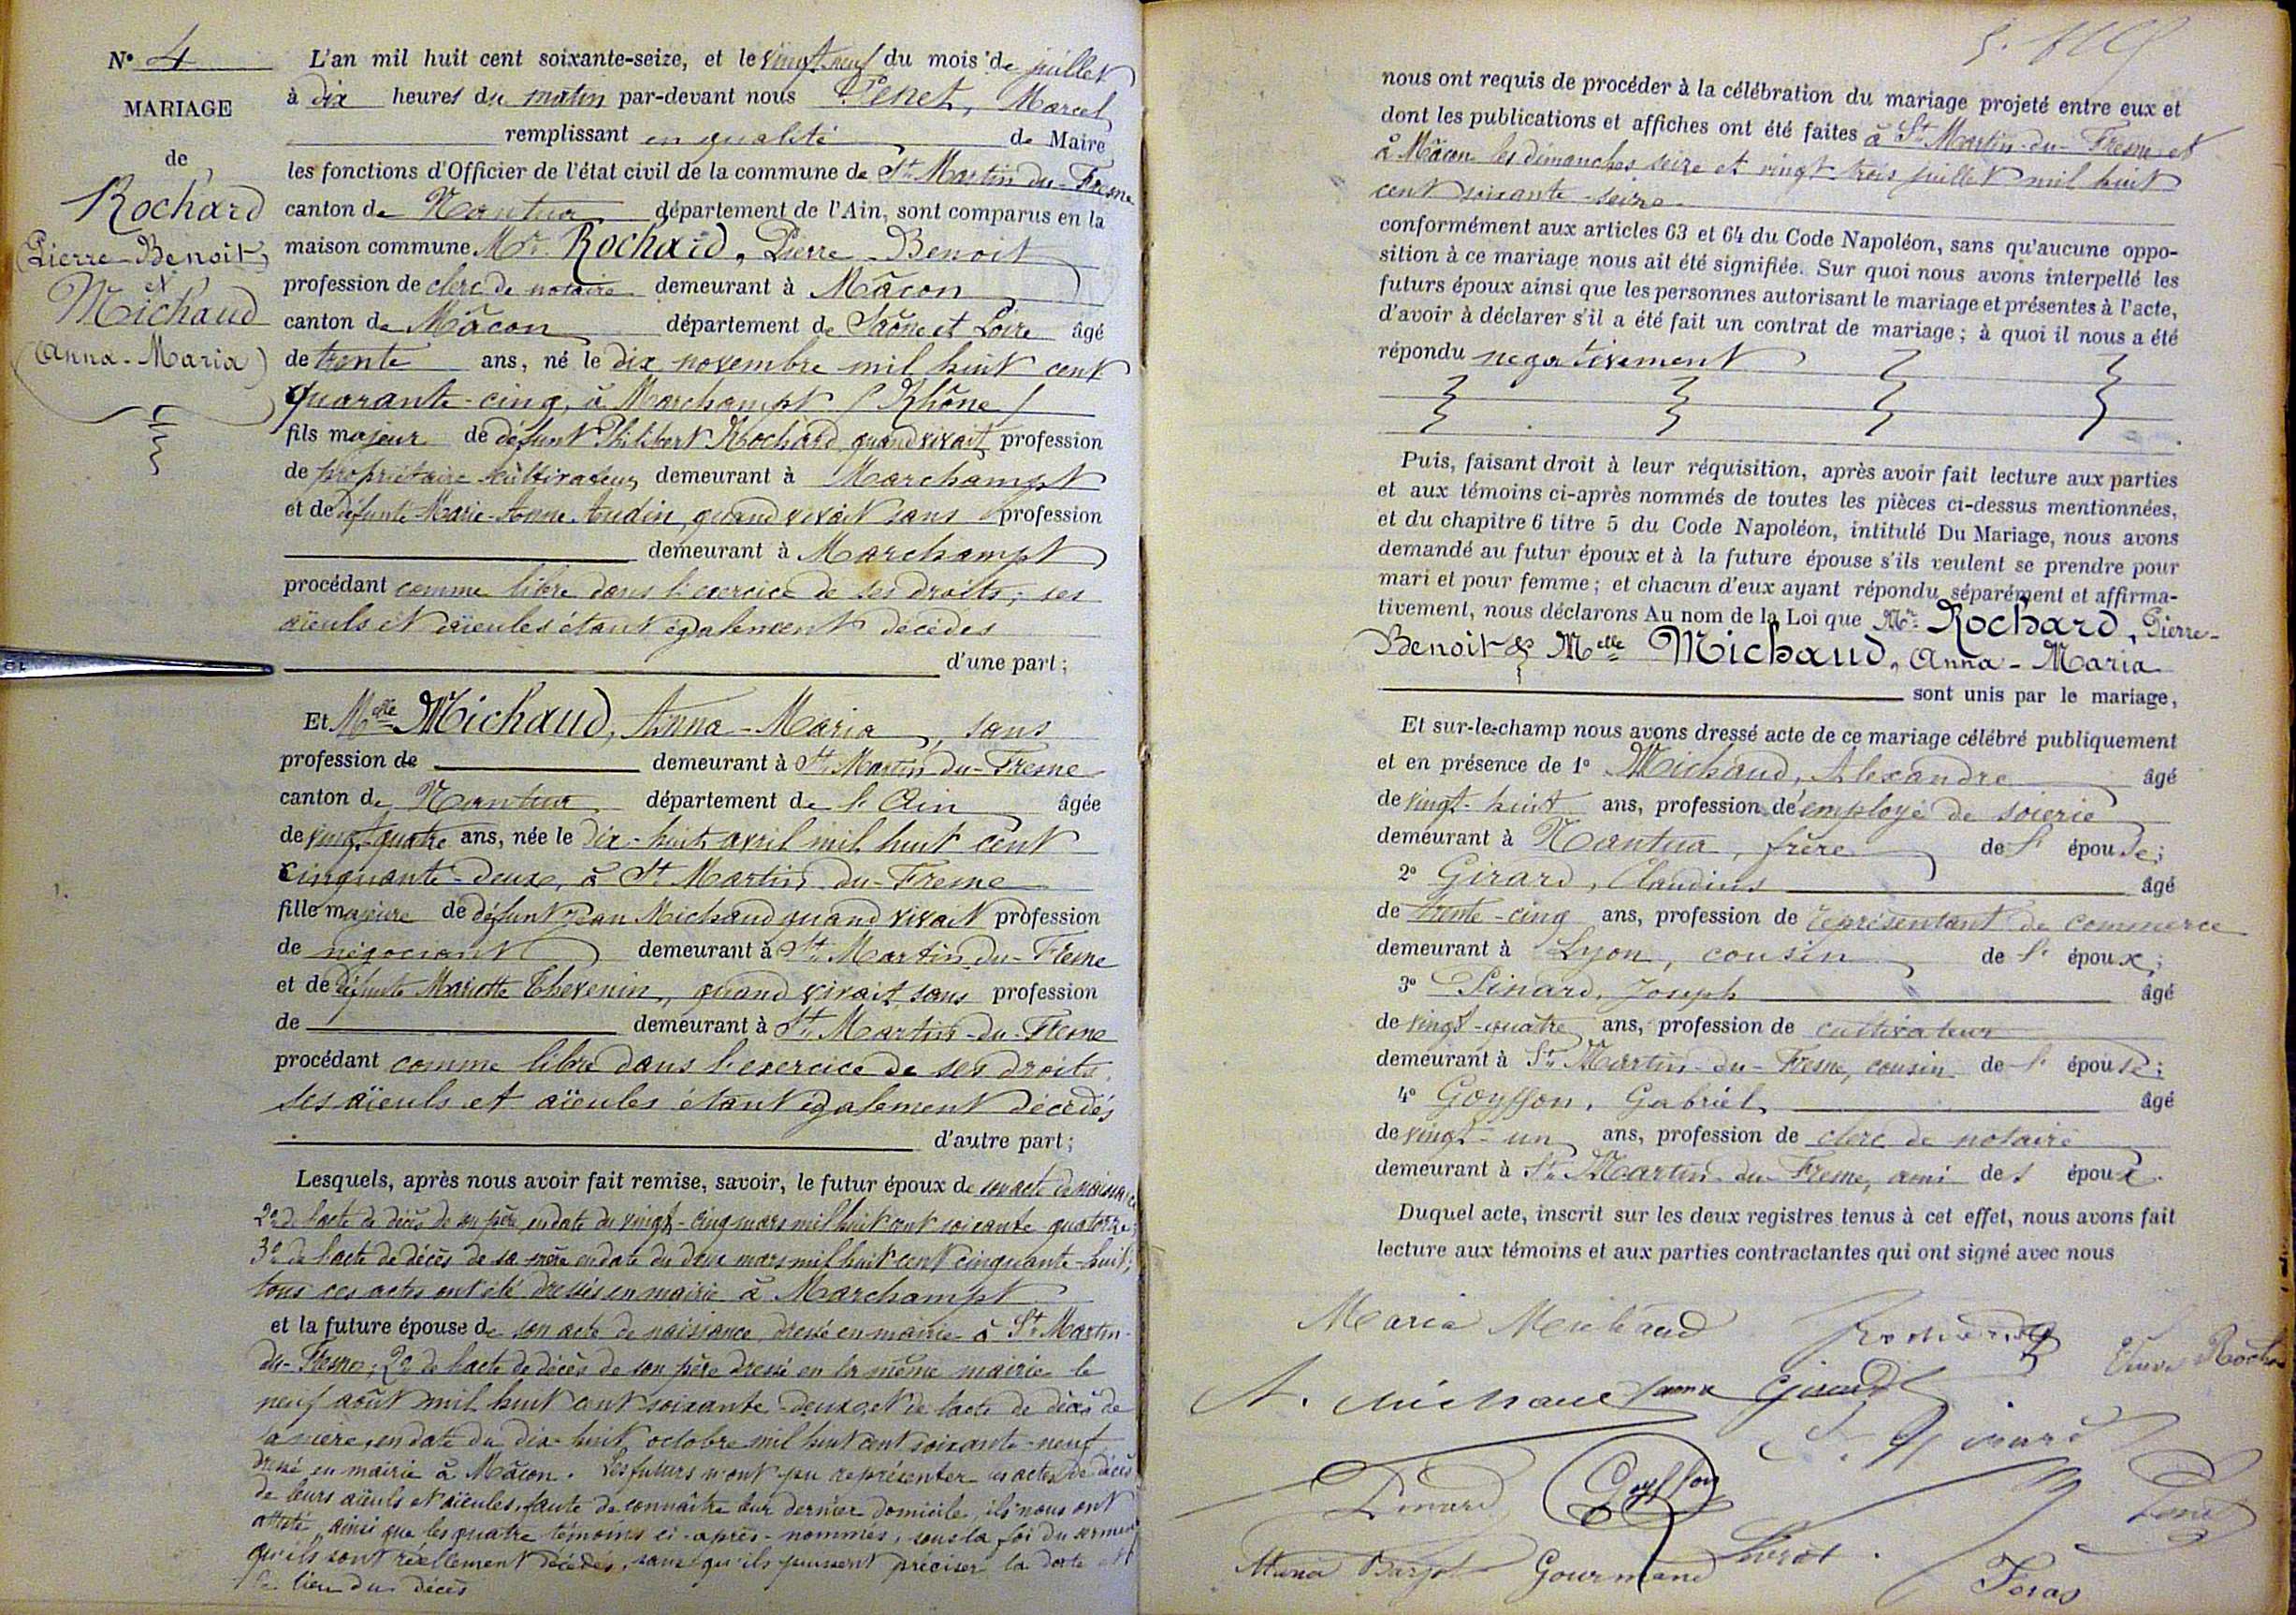 N° 4
MARIAGE
de
Rochard
(Pierre-Benoit)
et
Michaud
(Anna-Maria)
L'an mil huit cent soixante-seize, et le vingt neuf du mois de juillet
à dix heures du matin par-devant nous Penet, Marcel
remplissant en qualité de Maire
les fonctions d'Officier de l'état civil de la commune de St Martin-du-Fresne
canton de Nantua département de l'Ain, sont comparus en la
maison commune Mr Rochard, Pierre-Benoit
profession de clerc de notaire demeurant à Mâcon
canton de Mâcon département de Saône et Loire âgé
de trente ans, né le dix novembre mil huit cent
quarante-cinq, à Marchampt (Rhône)
fils majeur de défunt Philibert Rochard quand vivait profession
de propriétaire cultivateur demeurant à Marchampt
et de défunte Marie-Anne Audin, quand vivait sans profession
demeurant à Marchampt
procédant comme libre dans l'exercice de ses droits; ses
aïeuls et aïeules étant également décédés
d'une part;
Et Melle Michaud, Anna-Maria, sans
profession de demeurant à St Martin-du-Fresne
canton de Nantua département de l'Ain âgée
de vingt-quatre ans, née le dix-huit avril mil huit cent
cinquante-deux, à St Martin-du-Fresne
fille majeure de défunt Jean Michaud quand vivait profession
de négociant demeurant à St Martin-du-Fresne
et de défunte Mariette Thevenin, quand vivait sans profession
de demeurant à St Martin-du-Fresne
procédant comme libre dans l'exercice de ses droits,
ses aïeuls et aïeules étant également décédés
d'autre part;
Lesquels, après nous avoir fait remise, savoir, le futur époux de son acte de naissance
2° de l'acte de décès de son père, en date du vingt-cinq mars mil huit cent soixante quatorze;
3° de l'acte de décès de sa mère en date du deux mars mil huit cent cinquante-huit;
tous ces actes ont été dressés en mairie à Marchampt
et la future épouse de son acte de naissance, dressé en mairie à St Martin-
du-Fresne; 2° de l'acte de décès de son père dressé en la même mairie le
neuf août mil huit cent soixante-deux, et de l'acte de décès de
sa mère, en date du dix-huit octobre mil huit cent soixante-neuf
dressé en mairie à Mâcon. Les futurs n'ont pu représenter les actes de décès
de leurs aïeuls et aïeules, faute de connaître leur dernier domicile, ils nous ont
attesté, ainsi que les quatre témoins ci-après-nommés, sous la foi du serment
qu'ils sont réellement décédés, sans qu'ils puissent préciser la date et
le lieu du décès
nous ont requis de procéder à la célébration du mariage projeté entre eux et
dont les publications et affiches ont été faites à St Martin-du-Fresne et
à Mâcon les dimanches seize et vingt trois juillet mil huit
cent soixante-seize
conformément aux articles 63 et 64 du Code Napoléon, sans qu'aucune oppo-
sition à ce mariage nous ait été signifiée. Sur quoi nous avons interpellé les
futurs époux ainsi que les personnes autorisant le mariage et présentes à l'acte,
d'avoir à déclarer s'il a été fait un contrat de mariage; à quoi il nous a été
répondu negativement
Puis, faisant droit à leur réquisition, après avoir fait lecture aux parties
et aux témoins ci-après nommés de toutes les pièces ci-dessus mentionnées,
et du chapitre 6 titre 5 du Code Napoléon, intitulé Du Mariage, nous avons
demandé au futur époux et à la future épouse s'ils veulent se prendre pour
mari et pour femme; et chacun d'eux ayant répondu séparément et affirma-
tivement, nous déclarons Au nom de la Loi que Mr Rochard, Pierre-
Benoit & Melle Michaud, Anna-Maria
sont unis par le mariage,
Et sur-le-champ nous avons dressé acte de ce mariage célébré publiquement
et en présence de 1° Michaud, Alexandre âgé
de vingt-huit ans, profession d'employé de soierie
demeurant à Nantua, frère de l'épouse;
2° Girard, Claudius âgé
de trente-cinq ans, profession de représentant de commerce
demeurant à Lyon, cousin de l'époux;
3° Pinard, Joseph âgé
de vingt-quatre ans, profession de cultivateur
demeurant à St Martin-du-Fresne, cousin de l'épouse;
4° Goyffon, Gabriel âgé
de vingt-un ans, profession de clerc de notaire
demeurant à St Martin-du-Fresne, ami de l'époux.
Duquel acte, inscrit sur les deux registres tenus à cet effet, nous avons fait
lecture aux témoins et aux parties contractantes qui ont signé avec nous
Maria Michaud
A. Michaud Girard
Pinard Goyffon Penet
Maria Gourmand
Feras